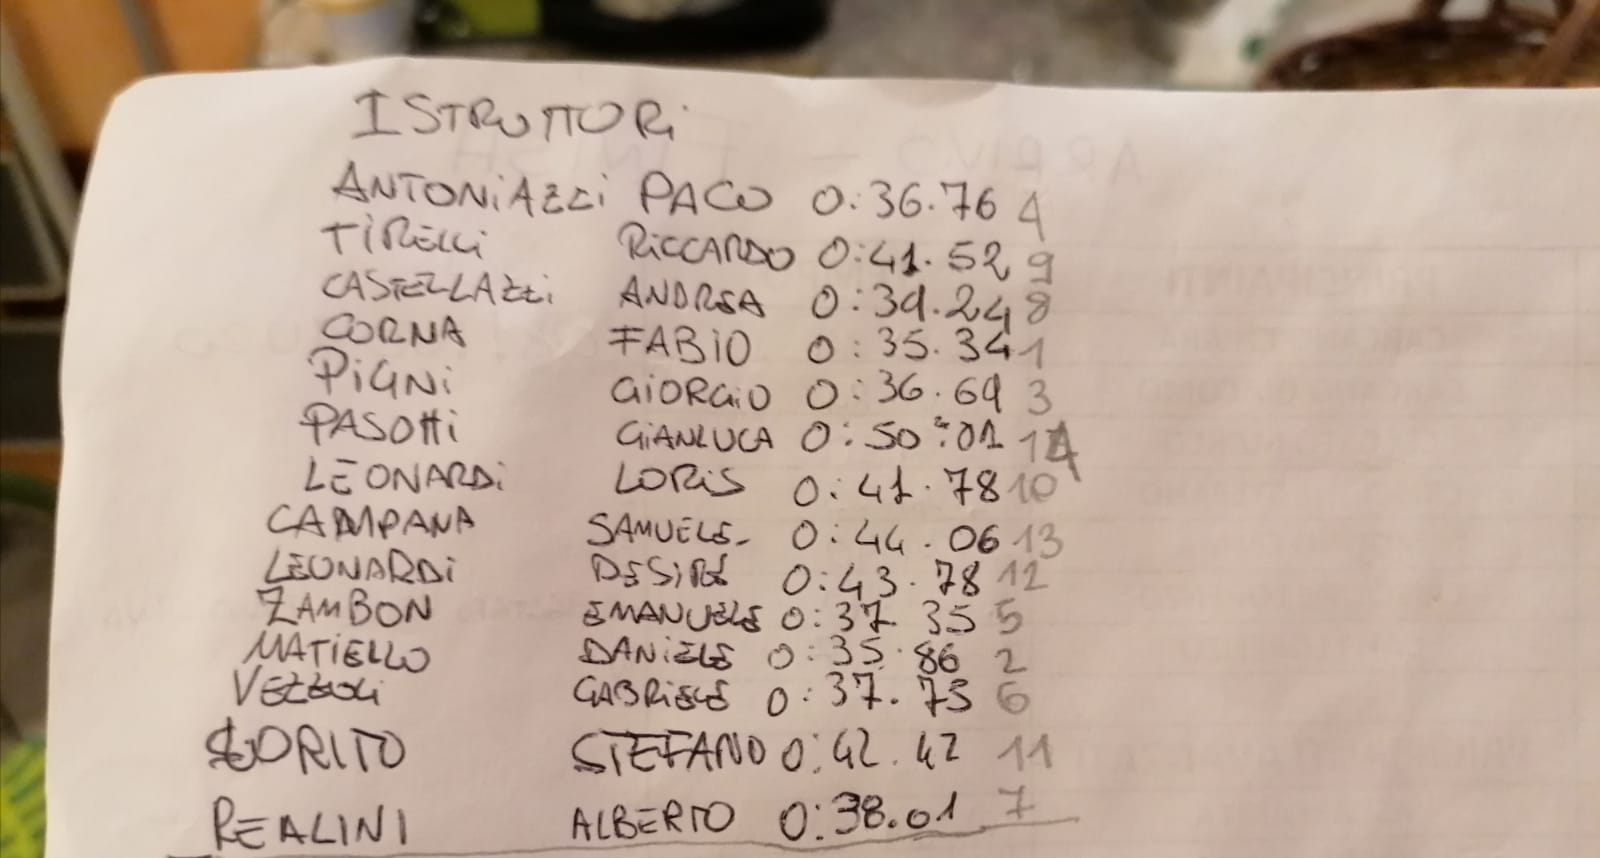 ISTRUTTORI
ANTONIAZZI PACO 0:36.76 4
TIRELLI RICCARDO 0:41.52 9
CASTELLAZZI ANDREA 0:39.24 8
CORNA FABIO 0:35.34 1
PIGNI GIORGIO 0:36.69 3
PASOTTI GIANLUCA 0:50:01 14
LEONARDI LORIS 0:41.78 10
CAMPANA SAMUELE 0:44.06 13
LEONARDI DESIRÉ 0:43.78 12
ZAMBON EMANUELE 0:37.35 5
MATIELLO DANIELE 0:35.86 2
VEZZOLI GABRIELE 0:37.75 6
SORITO STEFANO 0:42.42 11
REALINI ALBERTO 0:38.01 7